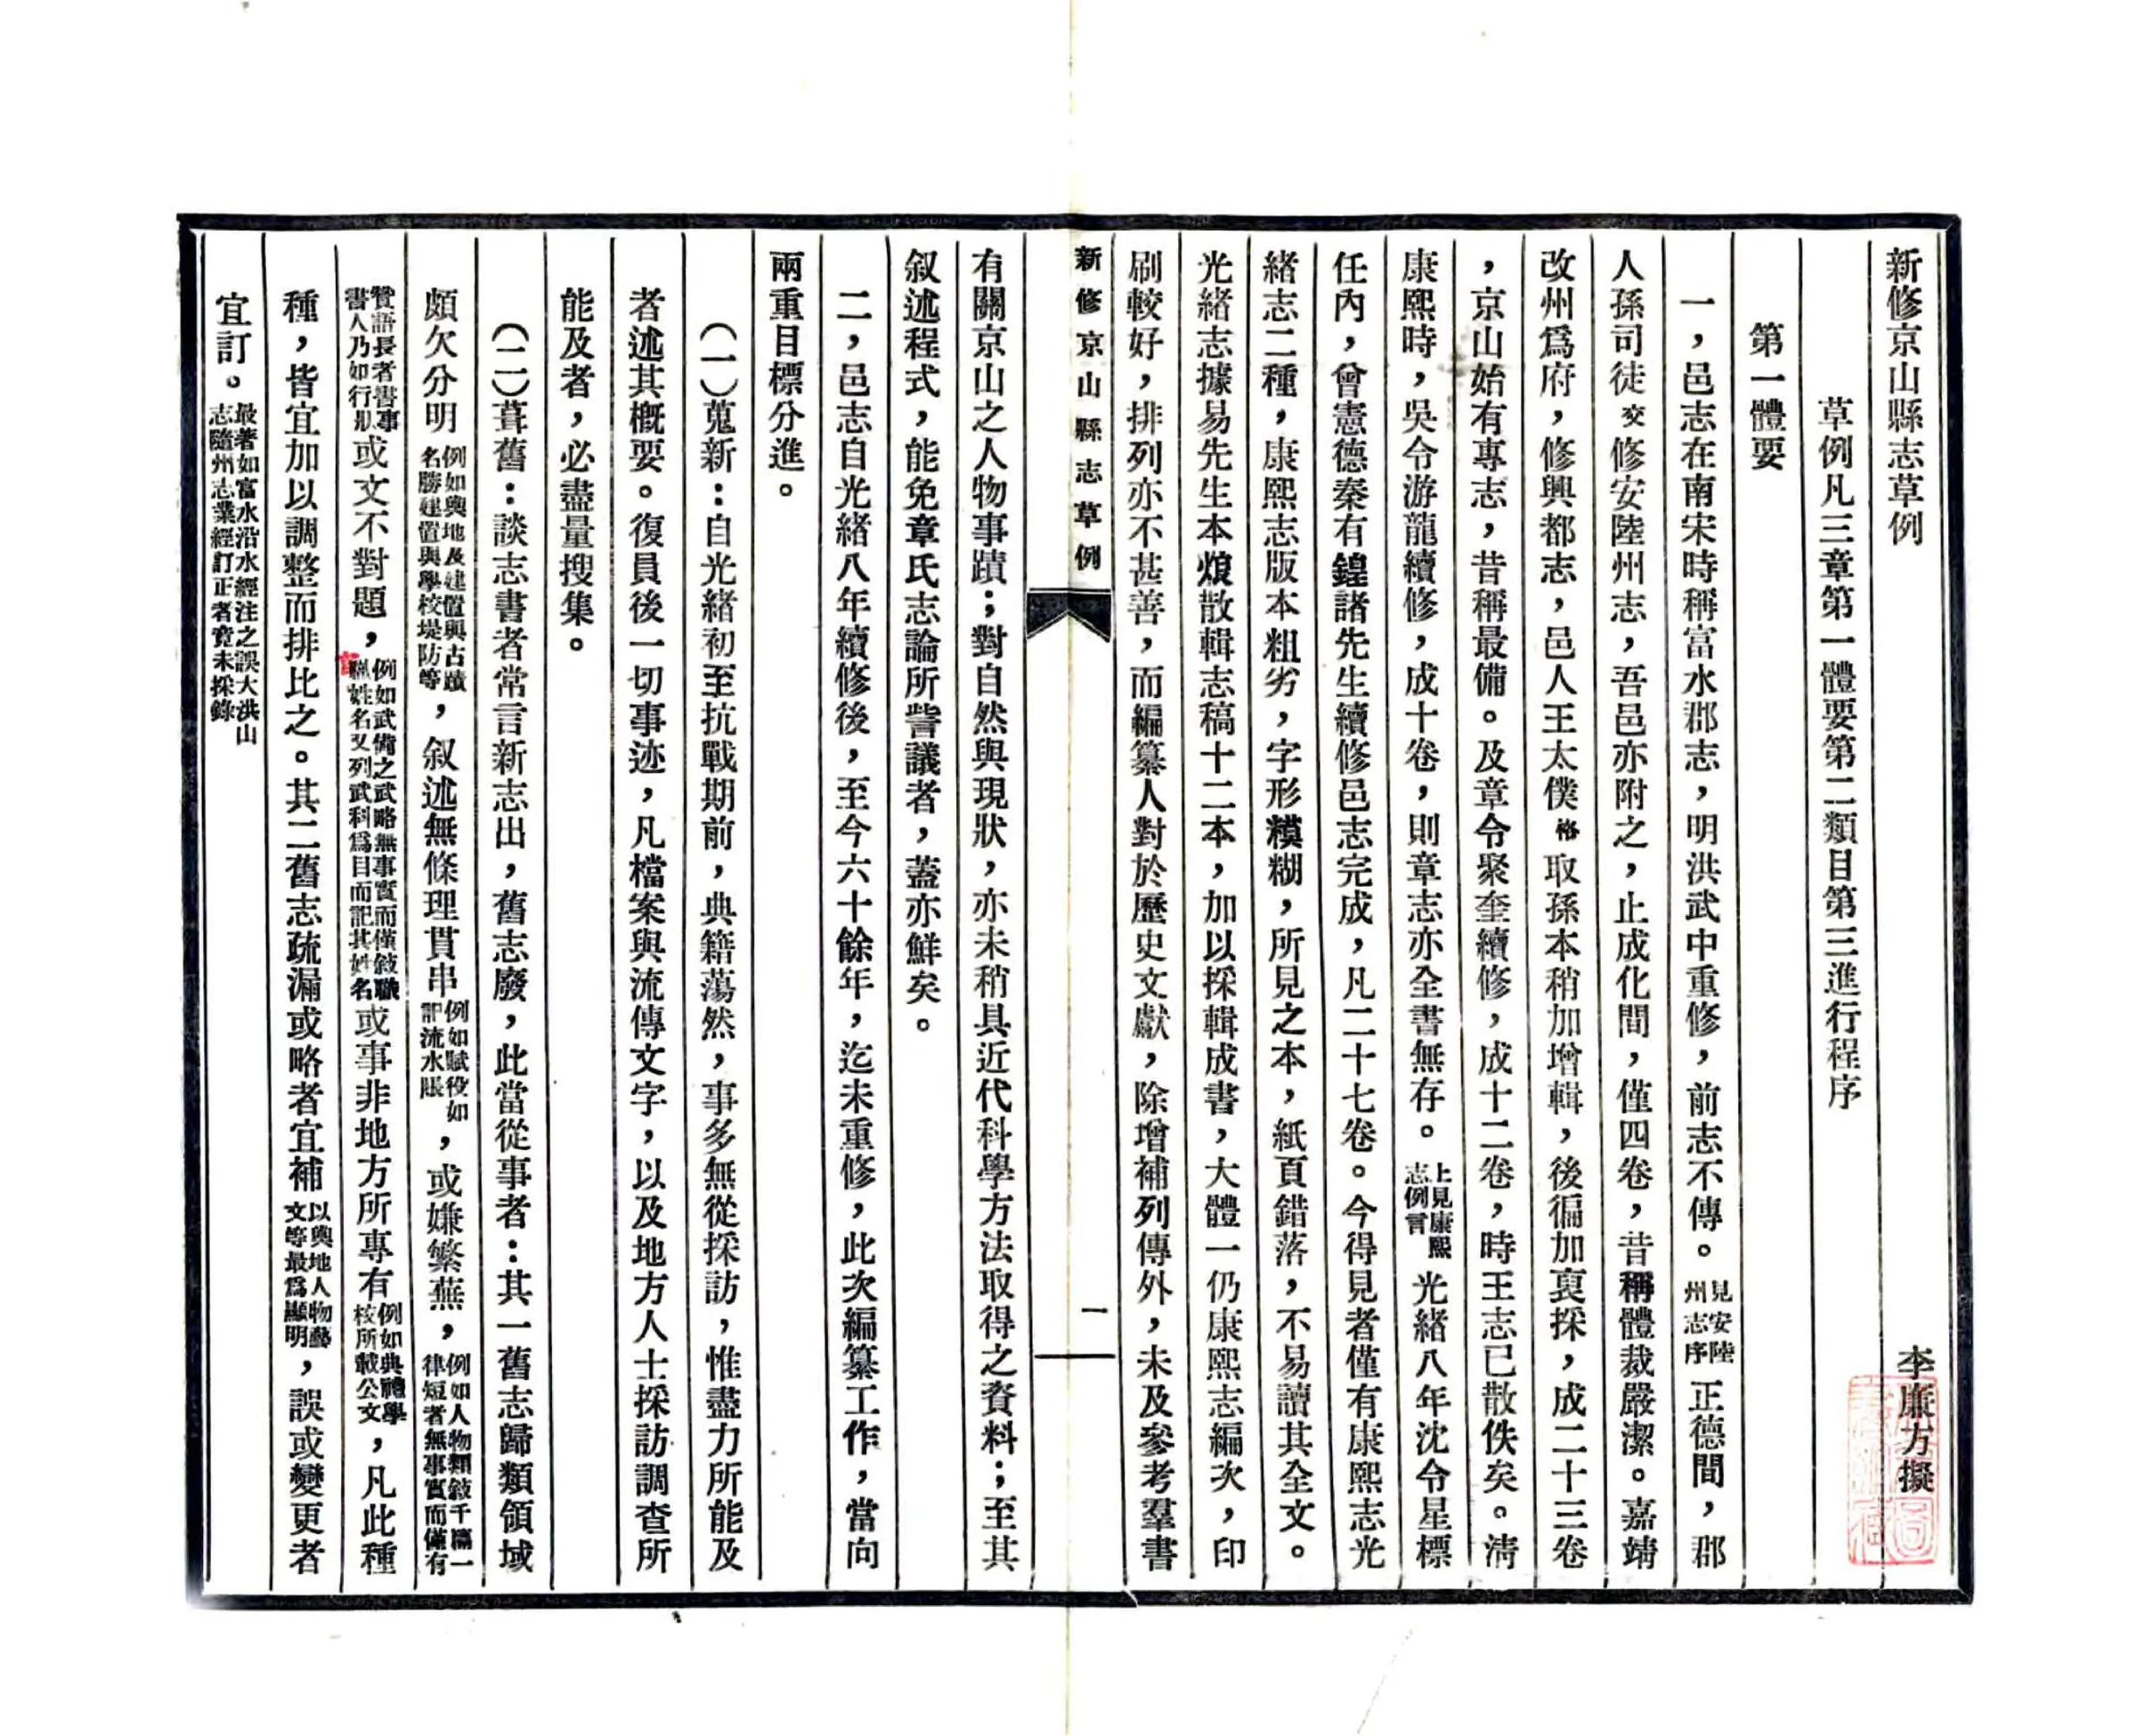 新修京山縣志草例
李廉方擬
草例凡三章第一體要第二類目第三進行程序
第一體要
一，邑志在南宋時稱富水郡志，明洪武中重修，前志不傳。見安陸州志序正德間，郡
人孫司徒交修安陸州志，吾邑亦附之，止成化間，僅四卷，昔稱體裁嚴潔。嘉靖
改州爲府，修興都志，邑人王太僕格取孫本稍加增輯，後徧加裒採，成二十三卷
，京山始有專志，昔稱最備。及章令聚奎續修，成十二卷，時王志已散佚矣。清
康熙時，吳令游龍續修，成十卷，則章志亦全書無存。上見康熙志例言光緒八年沈令星標
任內，曾憲德秦有鍠諸先生續修邑志完成，凡二十七卷。今得見者僅有康熙志光
緒志二種，康熙志版本粗劣，字形模糊，所見之本，紙頁錯落，不易讀其全文。
光緒志據易先生本烺散輯志稿十二本，加以採輯成書，大體一仍康熙志編次，印
刷較好，排列亦不甚善，而編纂人對於歷史文獻，除增補列傳外，未及參考羣書
新修京山縣志草例
一
有關京山之人物事蹟；對自然與現狀，亦未稍具近代科學方法取得之資料；至其
叙述程式，能免章氏志論所訾議者，蓋亦鮮矣。
二，邑志自光緒八年續修後，至今六十餘年，迄未重修，此次編纂工作，當向
兩重目標分進。
（一）蒐新：自光緒初至抗戰期前，典籍蕩然，事多無從採訪，惟盡力所能及
者述其概要。復員後一切事迹，凡檔案與流傳文字，以及地方人士採訪調查所
能及者，必盡量搜集。
（二）葺舊：談志書者常言新志出，舊志廢，此當從事者：其一舊志歸類領域
頗欠分明例如輿地及建置與古蹟名勝建置與學校堤防等，叙述無條理貫串例如賦役如記流水賬，或嫌繁蕪，例如人物類敍千篇一律短者無事實而僅有
贊語長者書事書人乃如行狀或文不對題，例如武備之武略無事實而僅敍職官職姓名又列武科爲目而記其姓名或事非地方所專有例如典禮學校所載公文，凡此種
種，皆宜加以調整而排比之。其二舊志疏漏或略者宜補以輿地人物藝文等最爲顯明，誤或變更者
宜訂。最著如富水沿水經注之誤大洪山志隨州志業經訂正者竟未採錄